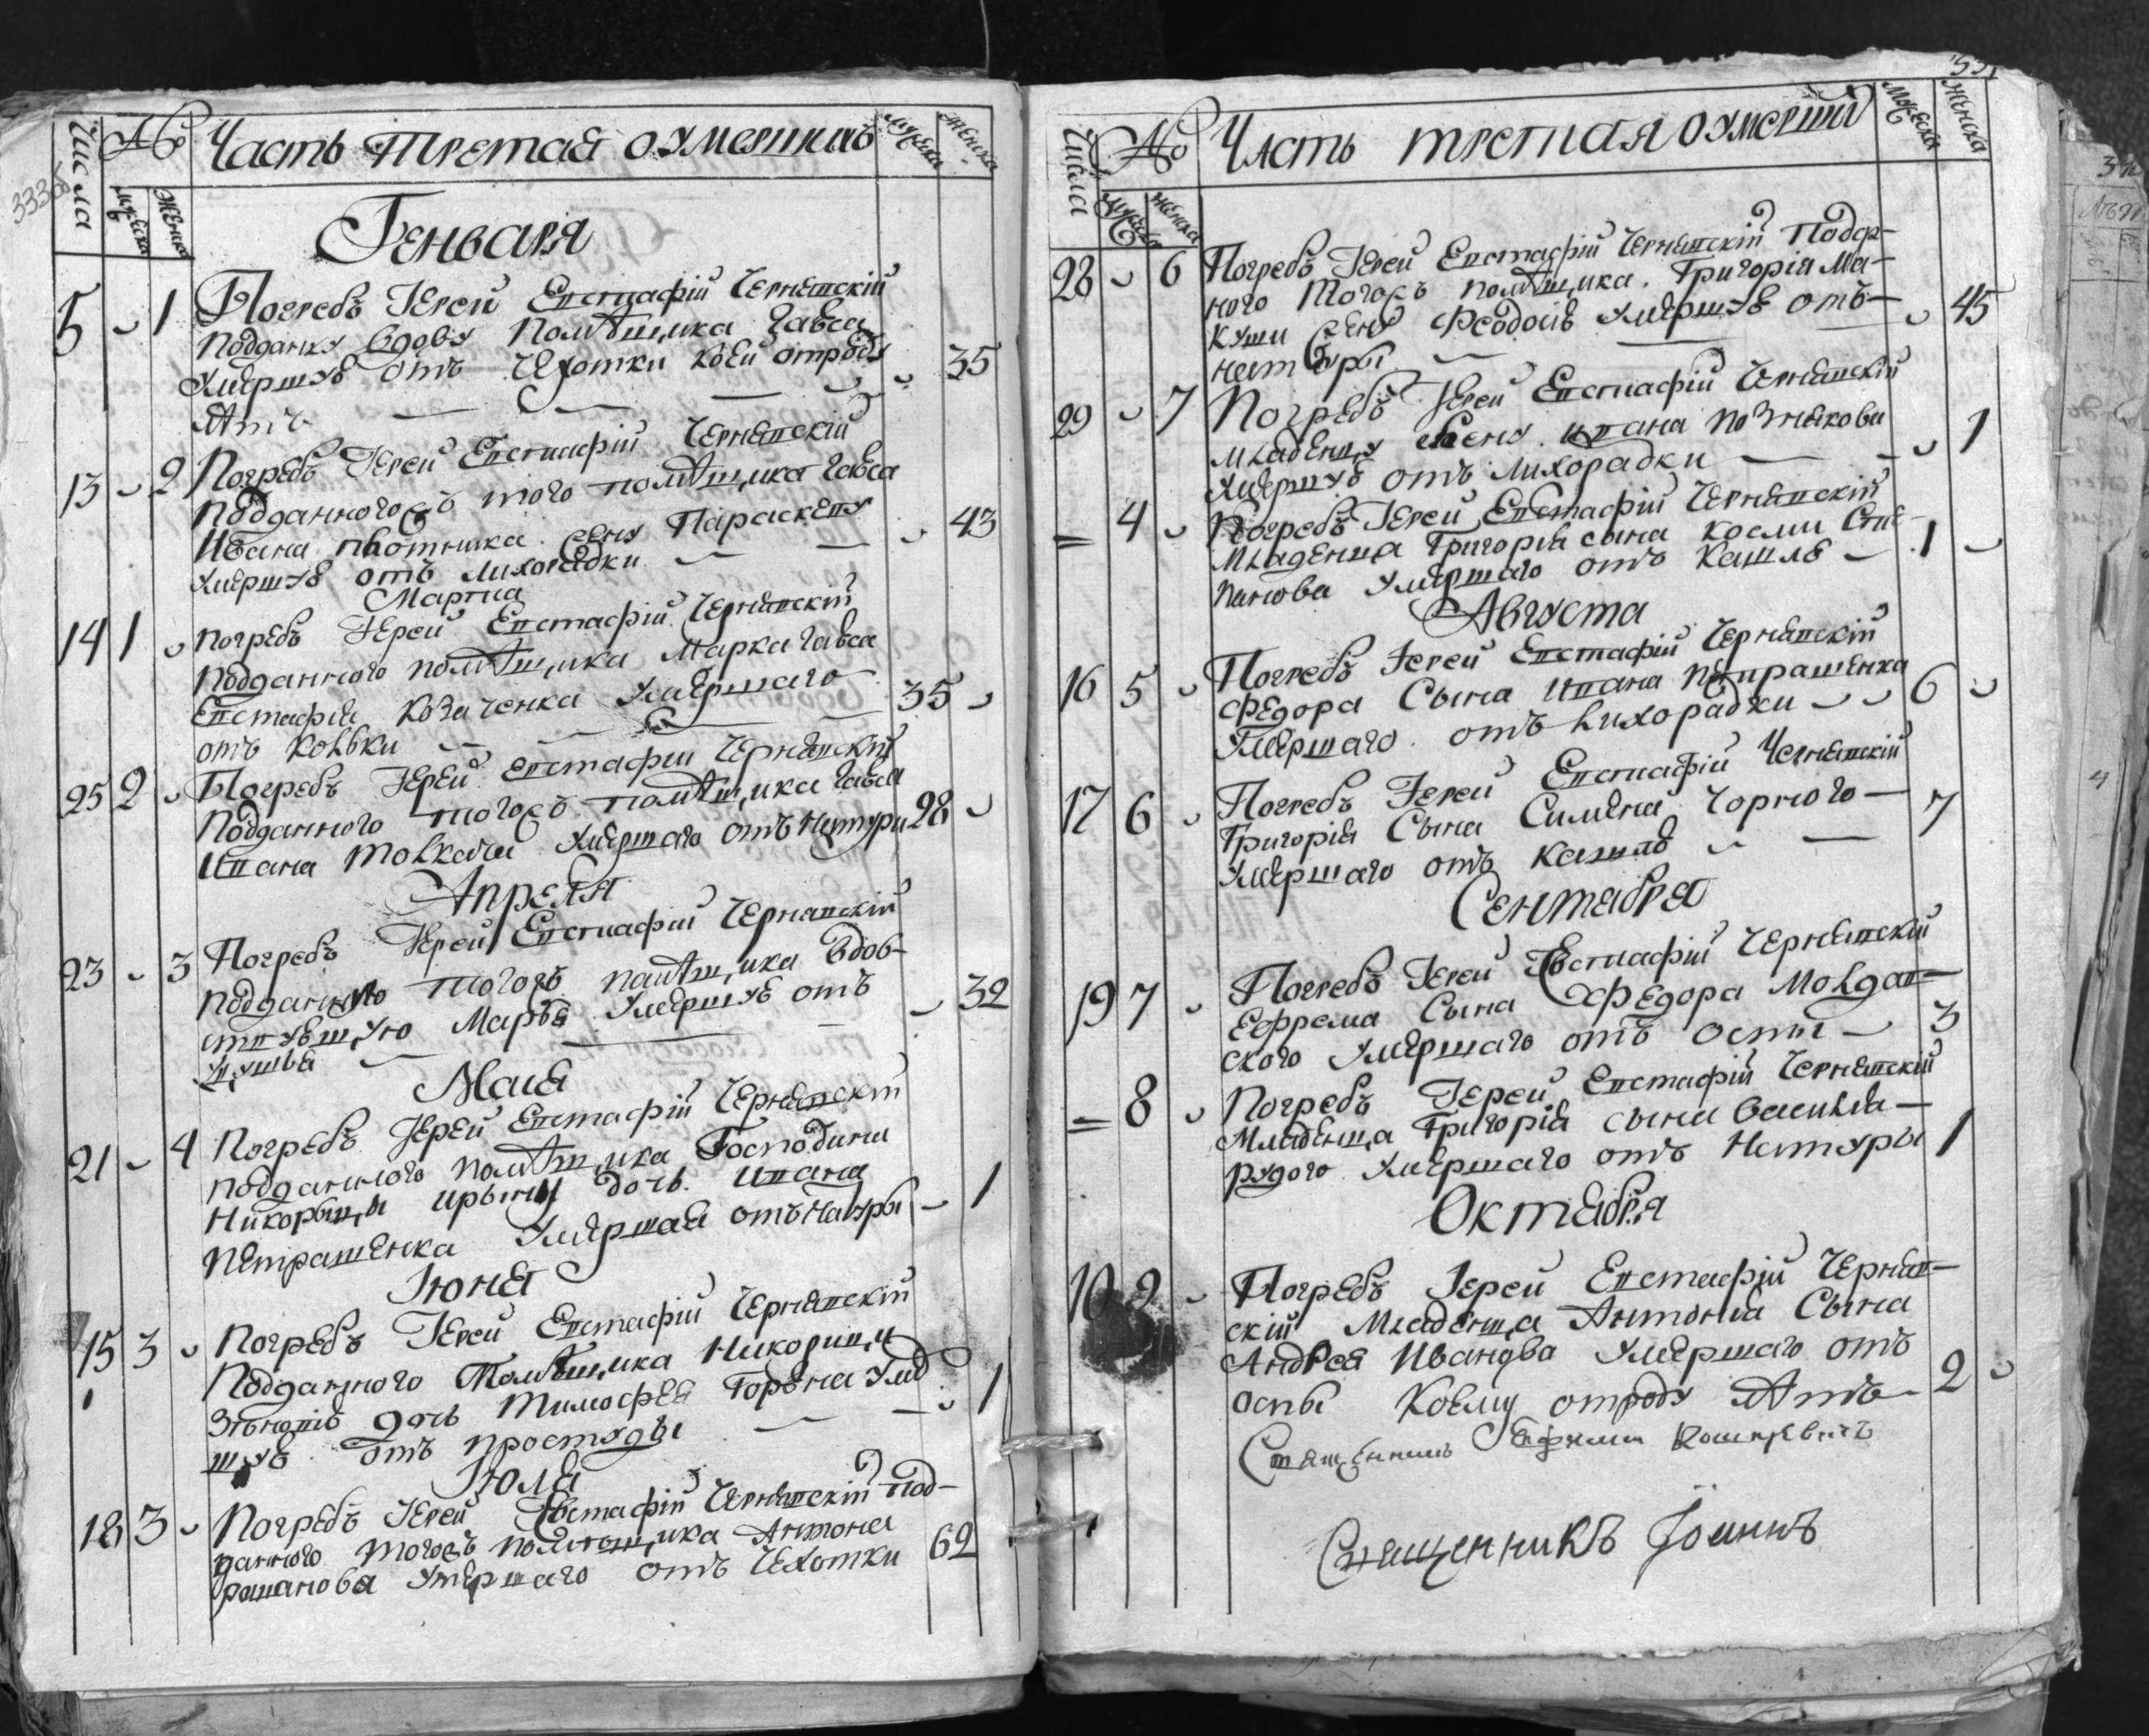 333об
Числа № Часть Третая о умерших мужеска женска
мужеска женска
Генваря
5 1 Погребъ Іерей Евстафій Чернявскій
подданку вдову помѣщика Гавса
умершуѣ отъ чехотки коей отроду 35
лѣтъ
13 2 Погребъ Іерей Евстафій Чернявскій
Подданного съ того помѣщика Гавса
Ивана плотника жену Параскеву 43
умершуѣ отъ лихорадки
Марта
14 1 погребъ Іерей Евстафій Чернявскій
подданного помѣщика Марка Гавса
Евстафія Козаченка умершаго 35
отъ колѣки
25 2 Погребъ Іерей Евстафій Чернявскій
Подданного тогожъ помѣщика Гавса
Ивана Толкача умершаго отъ натури 28
Апреля
23 3 Погребъ Іерей Евстафій Чернявскій
подданную тогожъ помѣщика вдов-
ствуѣщую Марья умершуѣ отъ 32
Мая
21 4 Погребъ Іерей Евстафій Чернявскій
подданного помѣщика Господина
Никорыци Ирыну дочь Ивана
Петрашенка умершая отъ натуры 1
Іюня
15 3 Погребъ Іерей Евстафій Чернявскій
Подданного Помѣщика Никорици
дочь Тимофея
шуѣ отъ простуды 1
Іюля
18 3 Погребъ Іерей Евстафій Чернявскій Под-
данного тогожъ помѣщика Антона
романова умершаго отъ чехотки 62
Числа № Часть третия о умерши мужеска женска
мужеска женска
28 6 Погребъ Іерей Евстафій Чернявскій Подда-
ного тогожъ помѣщика Григорія Ма-
куши жену Феодосіѣ умершуѣ отъ 45
натуры
29 7 Погребъ Іерей Евстафій Чернявскій
младенцу Ивана Познякова 1
умершуѣ отъ лихорадки
= 4 Погребъ Іерей Евстафій Чернявскій
Младенца Григорія сына Косми Сте-
панова умершаго отъ кашлѣ 1
Августа
16 5 Погребъ Іерей Евстафій Чернявскій
Федора Сына Ивана Петрашенка
умершаго отъ лихорадки 6
17 6 Погребъ Іерей Евстафій Чернявскій
Григорія Сына Симѣна Чорного
умершаго отъ кашлѣ 7
Сентября
19 7 Погребъ Іерей Евстафій Чернявскій
Ефрема Сына Федора Молдав-
ского умершаго отъ оспы 3
= 8 Погребъ Іерей Евстафій Чернявскій
Младенца Григорія сына Василія
рудого умершаго отъ натуры 1
Октября
10 9 Погребъ Іерей Евстафій Черняв-
скій Младенца Антонія Сына
Андрея Иванова умершаго отъ
оспы коему отроду лѣтъ 2
Священникъ
Священникъ Іоаннъ